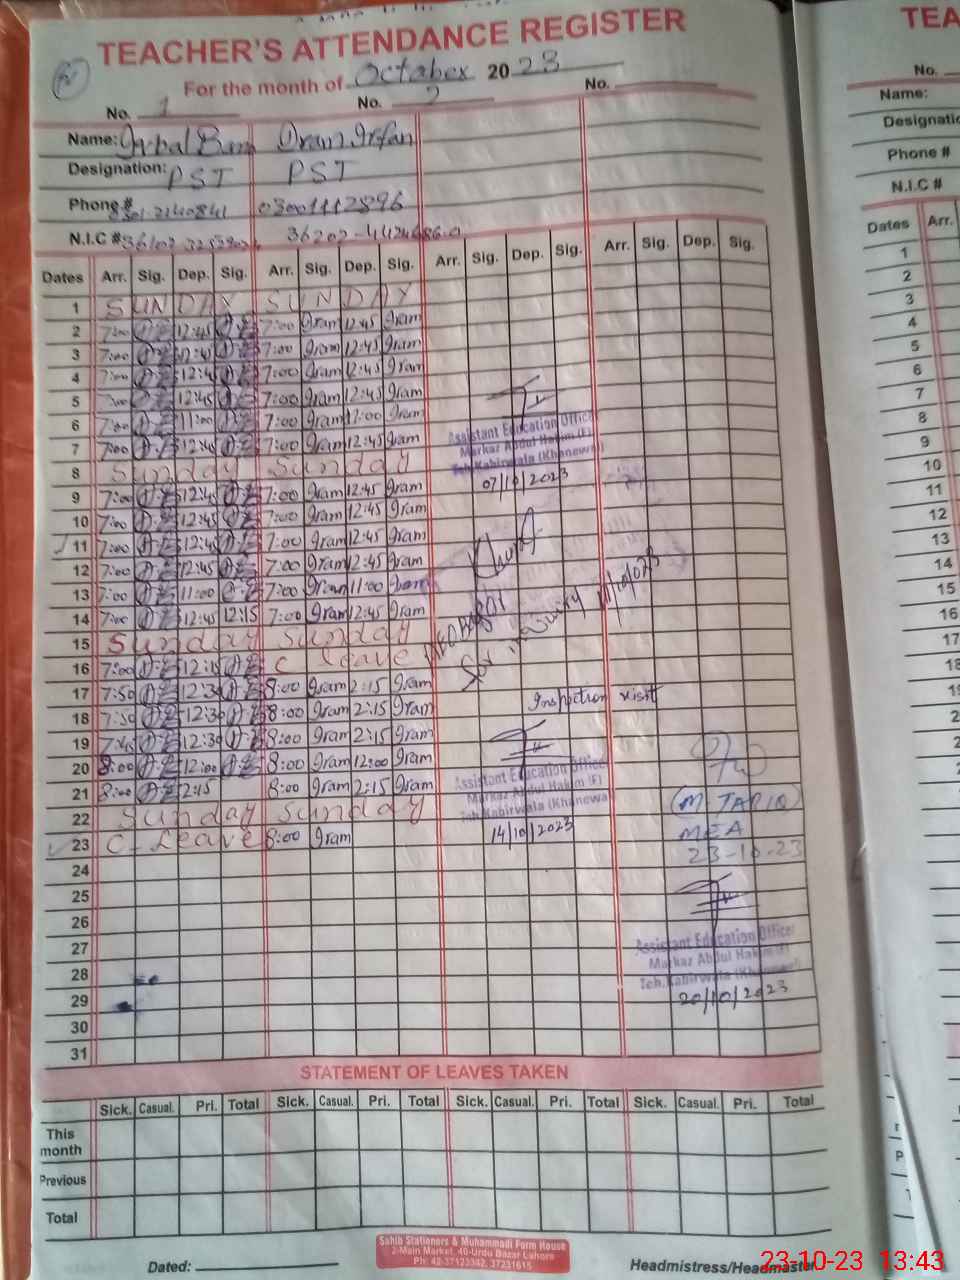 TEACHER'S ATTENDANCE REGISTER
For the month of October 2023
No. 1 No. 2 No.
Name: Iqbal Irfan
Designation: PST PST
Phone # 03001112896
N.I.C #
Dates Arr. Sig. Dep. Sig. Arr. Sig. Dep. Sig. Arr. Sig. Dep. Sig. Arr. Sig. Dep. Sig.
1 SUNDAY SUNDAY
2 7:00 12:45 7:00 Iram 12:45 Iram
3 7:00 12:45 7:00 Iram 12:45 Iram
4 7:00 12:45 7:00 Iram 12:45 Iram
5 7:00 12:45 7:00 Iram 12:45 Iram
6 7:00 11:00 7:00 Iram 11:00 Iram
7 7:00 12:45 7:00 Iram 12:45 Iram
8 Sunday Sunday
9 7:00 12:45 7:00 Iram 12:45 Iram
10 7:00 12:45 7:00 Iram 12:45 Iram
11 7:00 12:45 7:00 Iram 12:45 Iram
12 7:00 12:45 7:00 Iram 12:45 Iram
13 7:00 11:00 7:00 Iram 11:00 Iram
14 7:00 12:45 12:15 7:00 Iram 12:45 Iram
15 Sunday Sunday
16 7:00 12:15 C leave
17 7:50 12:30 8:00 Iram 2:15 Iram
18 7:50 12:30 8:00 Iram 2:15 Iram
19 7:45 12:30 8:00 Iram 2:15 Iram
20 8:00 12:00 8:00 Iram 12:00 Iram
21 8:00 2:15 8:00 Iram 2:15 Iram
22 Sunday Sunday
23 C- Leave 8:00 Iram
24
25
26
27
28
29
30
31
Assistant Education Officer
Markaz Abdul Hakim (F)
Teh. Kabirwala (Khanewal)
07/10/2023
11/10/023
Inspection visit
Assistant Education Officer
Markaz Abdul Hakim (F)
Teh. Kabirwala (Khanewal)
14/10/2023
(M TARIQ)
MEA
23-10-23
Assistant Education Officer
Markaz Abdul Hakim (F)
Teh. Kabirwala (Khanewal)
20/10/2023
STATEMENT OF LEAVES TAKEN
Sick. Casual. Pri. Total Sick. Casual. Pri. Total Sick. Casual. Pri. Total Sick. Casual. Pri. Total
This month
Previous
Total
Sahib Stationers & Muhammadi Form House
2-Main Market, 40-Urdu Bazar Lahore
Ph: 42-37123342, 37231615
Dated: Headmistress/Headmaster
TEA
No.
Name:
Designatio
Phone #
N.I.C #
Dates Arr.
1
2
3
4
5
6
7
8
9
10
11
12
13
14
15
16
17
18
23-10-23 13:43